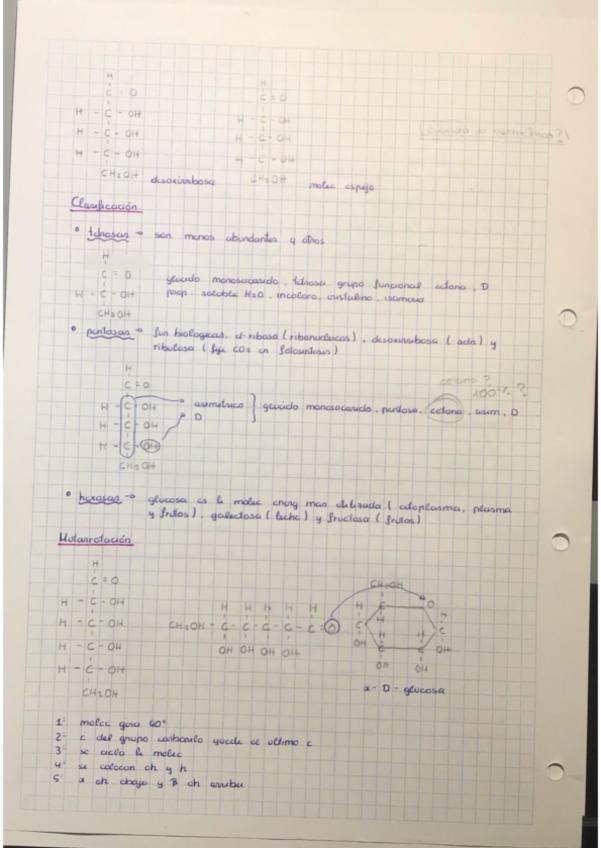 H
C = O
H - C - OH
H - C - OH
H - C - OH
CH₂OH desoxirribosa
H
C = O
H - C - OH
H - C - OH
H - C - OH
CH₂OH molec espejo
Clasificación
• tetrosas → son menos abundantes y otros
H
C = O
H - C - OH
CH₂OH
glucido monosacarido, tetrosa grupo funcional cetona, D
prop. soluble H₂O, incoloro, cristalino, isomeria
• pentosas → fun biologicas, d-ribosa (ribonucleicos), desoxirribosa (adn) y
ribulosa (fija CO₂ en fotosintesis)
cetona?
100%?
H
C = O
H - C - OH → asimetrico
H - C - OH D
H - C - OH
CH₂OH
} glucido monosacarido, pentosa, cetona, asim, D
• hexosas → glucosa es la molec energ mas utilizada (citoplasma, plasma
y frutos), galactosa (leche) y fructosa (frutos)
Mutarrotación
H
C = O
H - C - OH
H - C - OH
H - C - OH
H - C - OH
CH₂OH
H H H H H
CH₂OH - C - C - C - C - C = O
OH OH OH OH
CH₂OH
O
H
C
OH
H
C
OH
C
OH
C
OH
α - D - glucosa
1º molec gira 60º
2º c del grupo carbonilo quede al ultimo c
3º se cicla la molec
4º se colocan oh y h
5º α oh abajo y β oh arriba